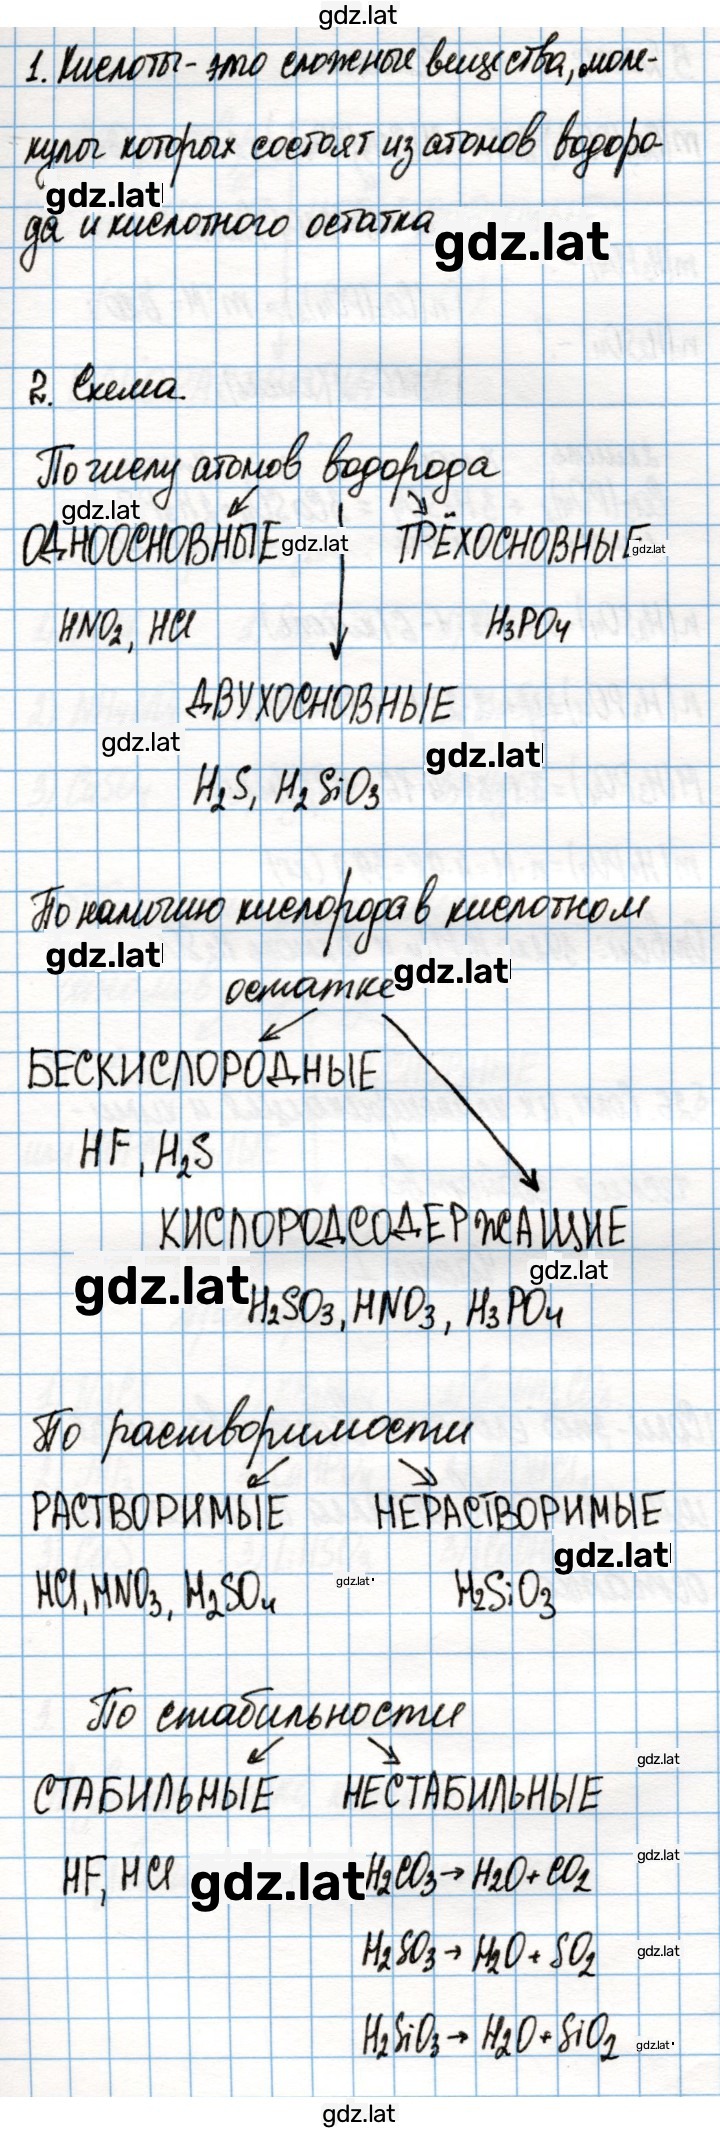 gdz.lat
1. Кислоты - это сложные вещества, моле-
кулы которых состоят из атомов водоро-
gdz.lat
да и кислотного остатка
gdz.lat
2. Схема.
По числу атомов водорода
gdz.lat
ОДНООСНОВНЫЕ gdz.lat ТРЁХОСНОВНЫЕ gdz.lat
HNO2, HCl H3PO4
ДВУХОСНОВНЫЕ
gdz.lat gdz.lat
H2S, H2SiO3
По наличию кислорода в кислотном
gdz.lat gdz.lat
остатке
БЕСКИСЛОРОДНЫЕ
HF, H2S
КИСЛОРОДСОДЕРЖАЩИЕ
gdz.lat gdz.lat
H2SO3, HNO3, H3PO4
По растворимости
РАСТВОРИМЫЕ НЕРАСТВОРИМЫЕ
gdz.lat
HCl, HNO3, H2SO4 gdz.lat H2SiO3
По стабильности
gdz.lat
СТАБИЛЬНЫЕ НЕСТАБИЛЬНЫЕ
gdz.lat
HF, HCl gdz.lat H2CO3 → H2O + CO2
H2SO3 → H2O + SO2 gdz.lat
H2SiO3 → H2O + SiO2 gdz.lat
gdz.lat